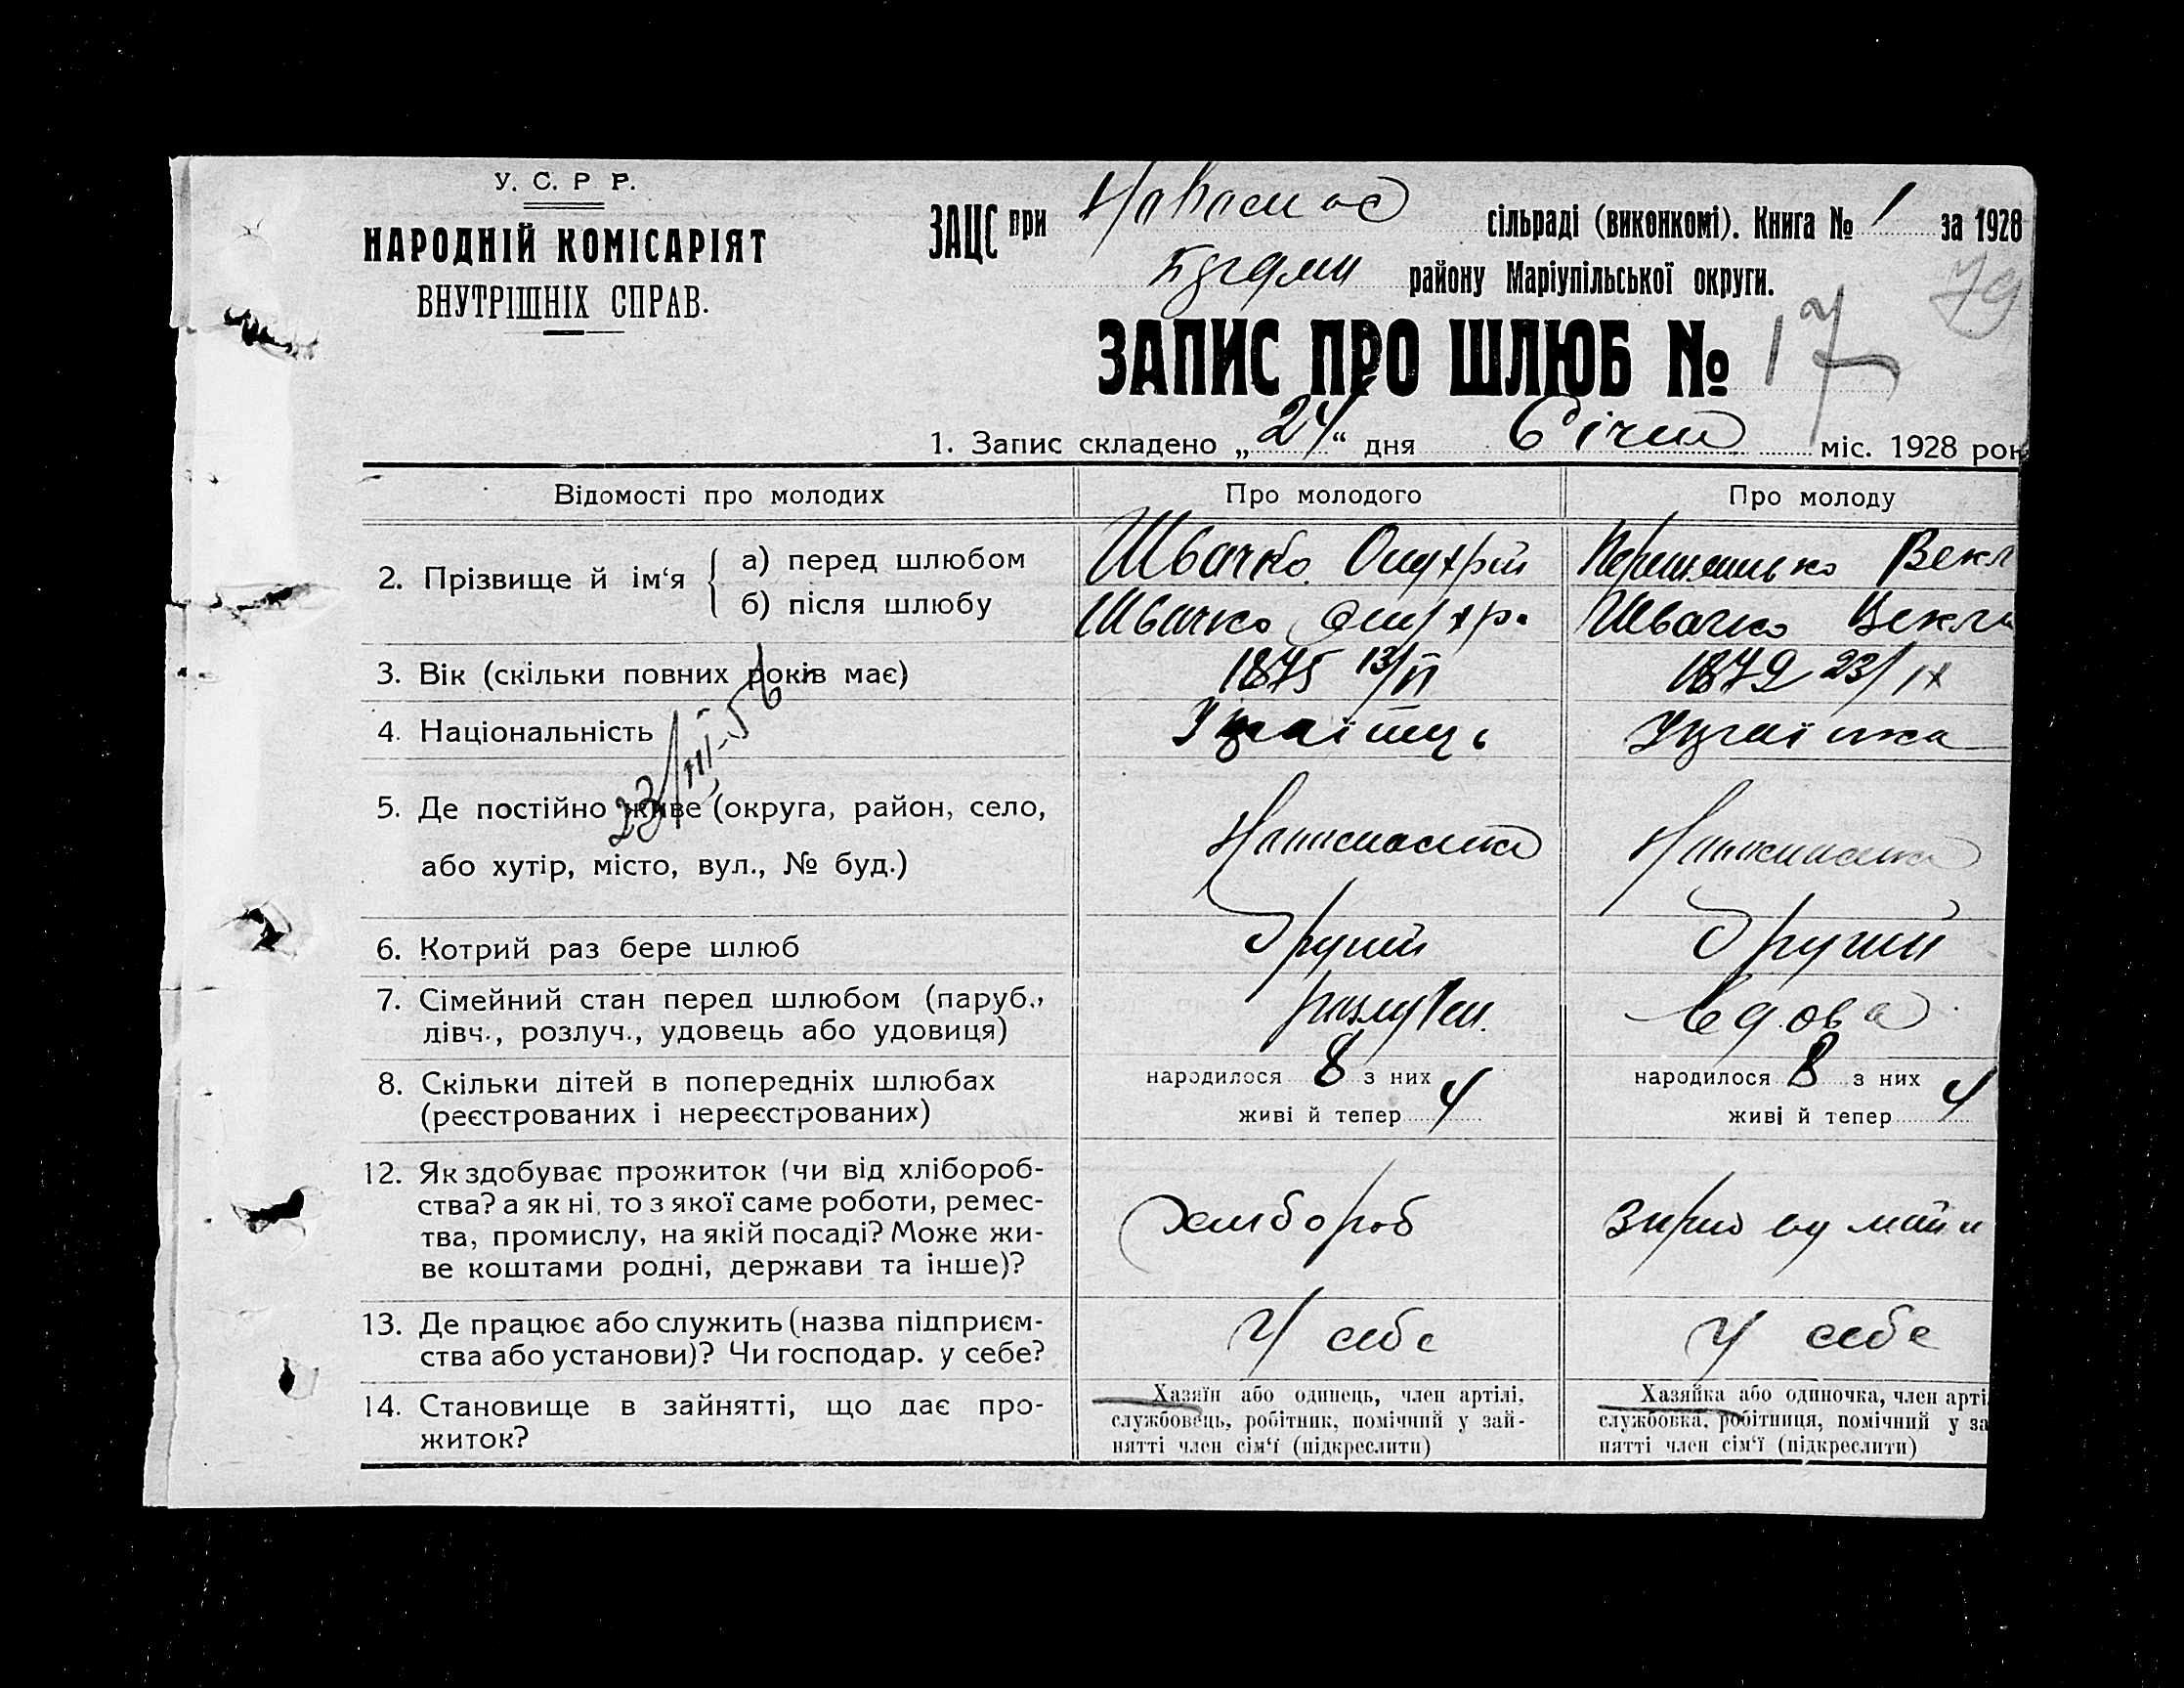 У. С. Р Р.
НАРОДНІЙ КОМІСАРІЯТ
ВНУТРІШНІХ СПРАВ.
ЗАЦС при сільраді (виконкомі). Книга № 1 за 1928
району Маріупільської округи.
79
ЗАПИС ПРО ШЛЮБ № 17
1. Запис складено „24“ дня Січня міс. 1928 рок
Відомості про молодих
Про молодого
Про молоду
2. Прізвище й ім‘я
а) перед шлюбом
Швачко
Векл
б) після шлюбу
Швачко
Швачко Векли
3. Вік (скільки повних років має)
1875 13/II
1879 23/IX
4. Національність
Украінець
Украінка
23/III-56
5. Де постійно живе (округа, район, село,
або хутір, місто, вул., № буд.)
6. Котрий раз бере шлюб
другий
другий
7. Сімейний стан перед шлюбом (паруб.,
дівч., розлуч., удовець або удовиця)
вдова
8. Скільки дітей в попередніх шлюбах
(реєстрованих і нереєстрованих)
народилося 8 з них
живі й тепер 4
народилося 8 з них
живі й тепер 4
12. Як здобуває прожиток (чи від хлібороб-
ства? а як ні, то з якої саме роботи, ремес-
тва, промислу, на якій посаді? Може жи-
ве коштами родні, держави та інше)?
хлибороб
13. Де працює або служить (назва підприєм-
ства або установи)? Чи господар. у себе?
У себе
У себе
14. Становище в зайнятті, що дає про-
житок?
Хазяїн або одинець, член артілі,
службовець, робітник, помічний у зай-
нятті член сім‘ї (підкреслити)
Хазяйка або одиночка, член арті
службовка, робітниця, помічний у за
нятті член сім‘ї (підкреслити)